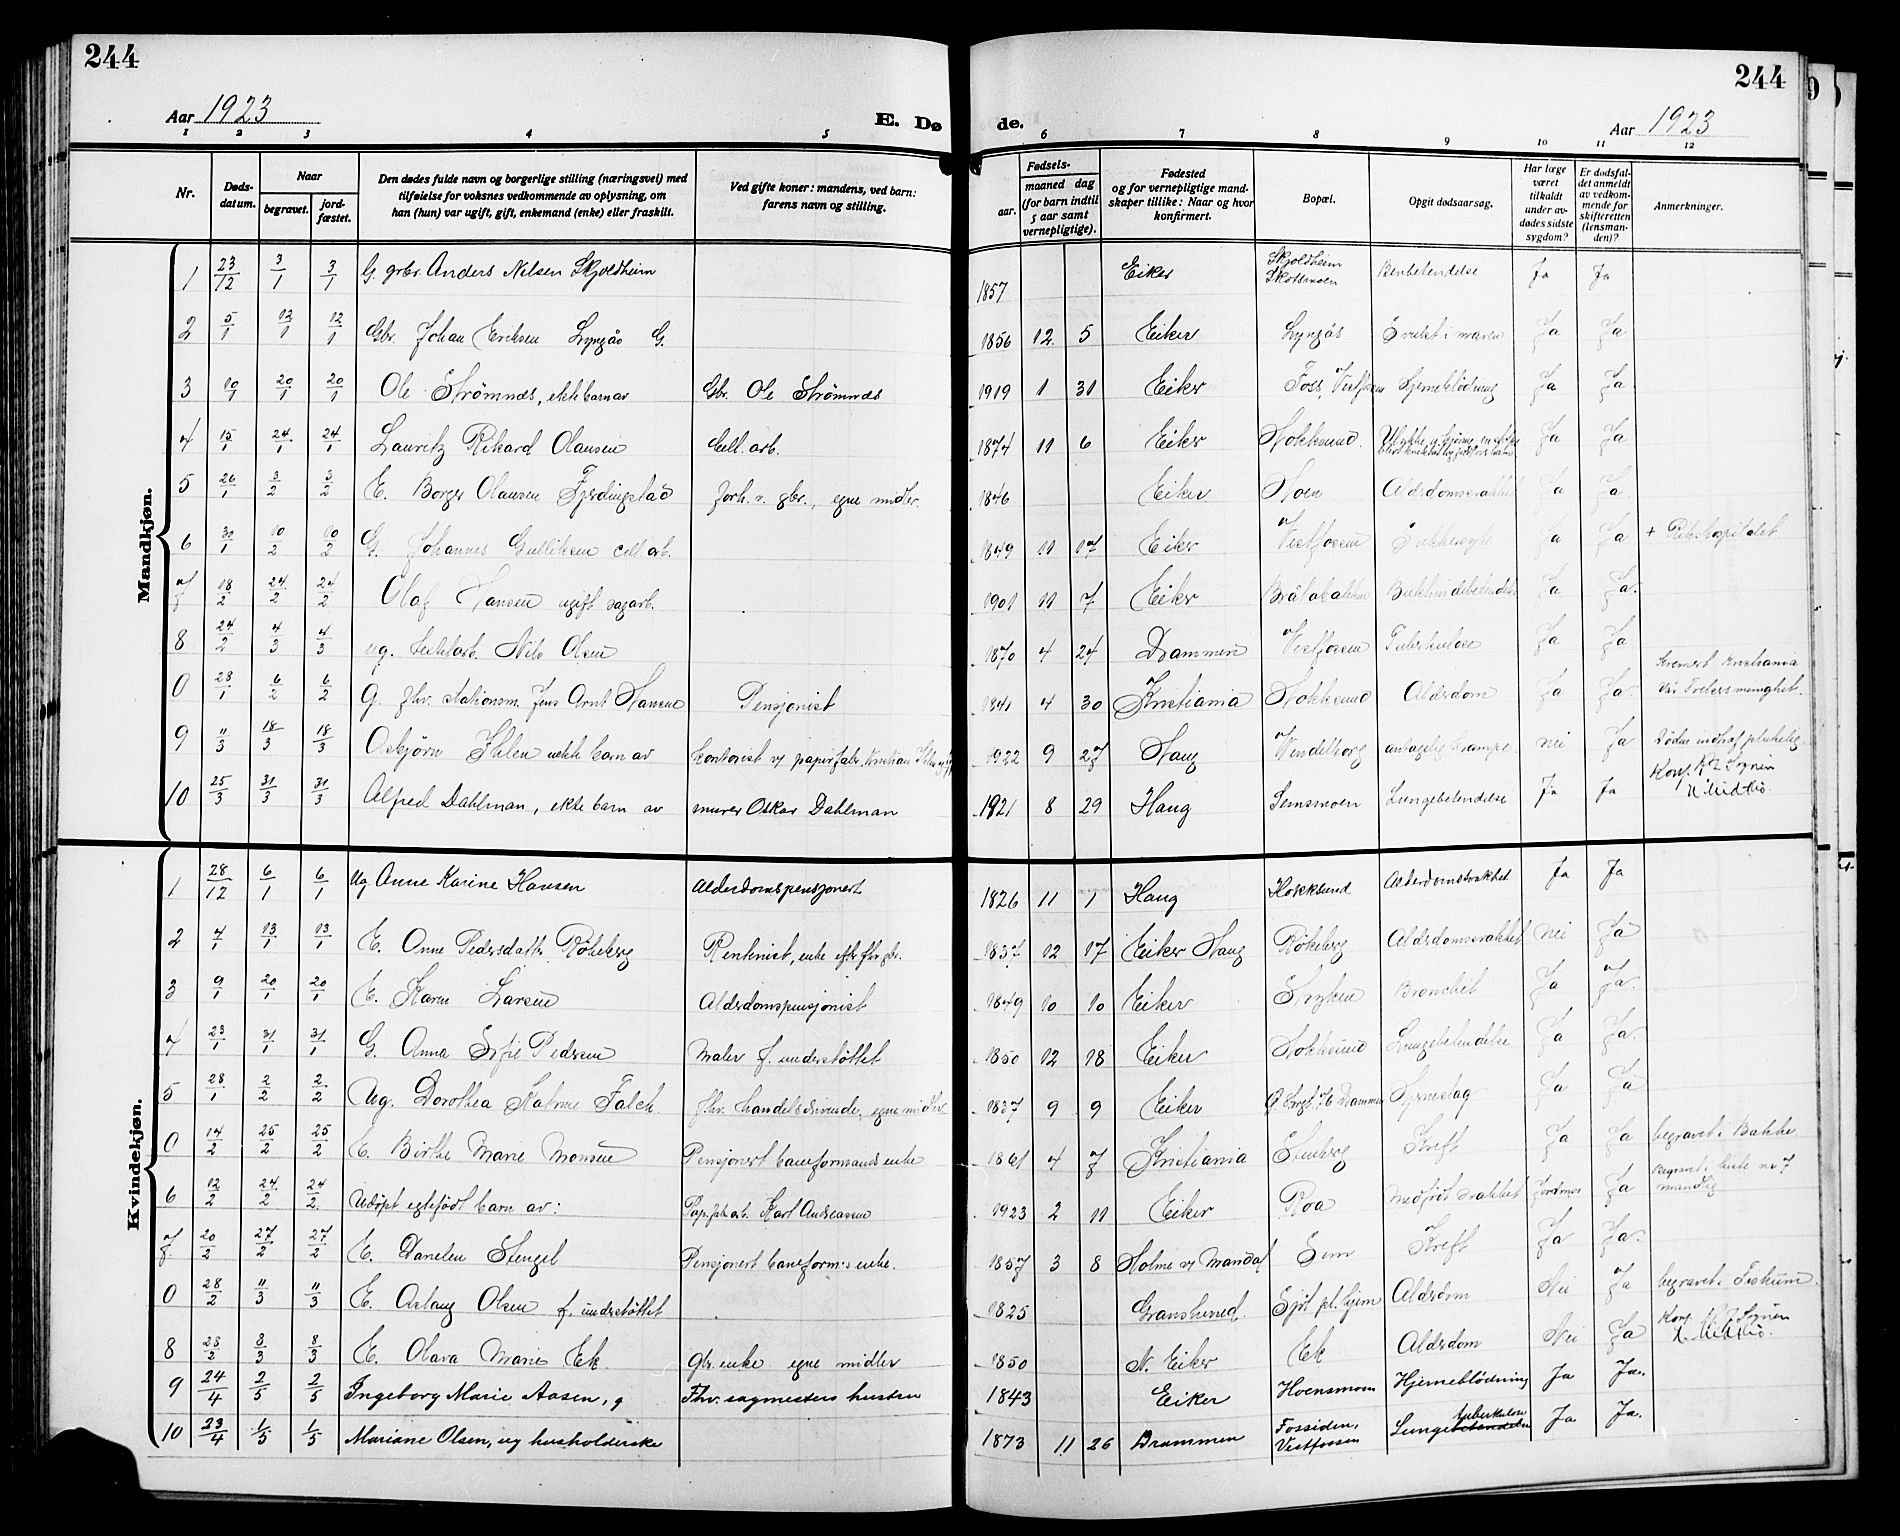 244
244
Aar 1923
E. Døde.
Aar 1923
1 2 3 4 5 6 7 8 9 10 11 12
Nr.
Døds-datum.
Naar
begravet.
jord-fæstet.
Den dødes fulde navn og borgerlige stilling (næringsvei) med
tilføielse for voksnes vedkommende av oplysning, om
han (hun) var ugift, gift, enkemand (enke) eller fraskilt.
Ved gifte koner: mandens, ved barn:
farens navn og stilling.
Fødsels-
aar.
maaned dag
(for barn indtil
5 aar samt
vernepligtige).
Fødested
og for vernepligtige mand-
skaper tillike: Naar og hvor
konfirmert.
Bopæl.
Opgit dødsaarsag.
Har læge
været
tilkaldt
under av-
dødes sidste
sygdom?
Er dødsfal-
det anmeldt
av vedkom-
mende for
skifteretten
(lensman-
den)?
Anmerkninger.
Mandkjøn.
1 23/12 3/1 3/1 G. grbr. Anders Nilsen Skjoldheim 1857 Eiker Skjoldheim Skotsmoen Benbetendelse Ja Ja
2 5/1 12/1 12/1 Gbr. Johan Eriksen Lyngås G. 1856 12 5 Eiker Lyngås Svulst i maven Ja Ja
3 10/1 20/1 20/1 Ole Strømnes, ekte barn av Gbr. Ole Strømnes 1919 1 31 Eiker Foss, Vestfossen Hjerneblødning Ja Ja
4 15/1 24/1 24/1 Lauritz Rikard Olausen Cell. arb. 1874 11 6 Eiker Hokksund. Ja Ja
5 26/1 3/2 3/2 E. Borger Olausen Fjerdingstad forh. v. gbr., egne midler. 1846 Eiker Hoen Alderdomssvakhet Ja Ja
6 30/1 10/2 10/2 G. Johannes Gulliksen cell arb. 1849 11 17 Eiker Vestfossen Sukkersyke Ja Ja + Rikshospitalet
7 18/2 24/2 24/2 Olaf Hansen ugift sagarb. 1901 11 7 Eiker Bråtabakken Bukhindebetendelse Ja Ja.
8 24/2 4/3 4/3 ug. Nils Olsen 1870 4 24 Drammen Vestfossen Tuberkulose Ja Ja
0 28/1 6/2 6/2 G. fhv. stationsm. Jens Arnt Hansen Pensjonist 1841 4 30 Kristiania Hokksund Alderdom Ja Ja Kremert Kristiania Vår Frelsers menighet.
9 11/3 18/3 18/3 Asbjørn Ihlen uekte barn av kontorist v/ papirfabr. Kristian Ihlen 1922 9 27 Haug Vendelborg antagelig krampe. nei Ja Døde indtraf plutselig.
10 25/3 31/3 31/3 Alfred Dahlman, ekte barn av murer Oskar Dahlman 1921 8 29 Haug Semsmoen Lungebetendelse Ja Ja Konf. K. Z. Sognen
Kvindekjøn.
1 28/12 6/1 6/1 Ug. Anne Karine Hansen Alderdomspensjonert 1826 11 1 Haug Hokksund Alderdomssvakhet Ja Ja
2 4/1 13/1 13/1 E. Anne Pedersdatter Røkeberg Rentenist, enke efter fhv. gbr. 1837 12 17 Eiker Haug Røkeberg Alderdomssvakhet nei Ja
3 9/1 20/1 20/1 E. Karen Larsen Alderdomspensjonist 1849 10 10 Eiker Stryken Bronchit Ja Ja.
4 23/1 31/1 31/1 G. Anna Sofie Pedersen Maler f. understøttet 1850 12 18 Eiker Hokksund Lungebetendelse Ja Ja.
5 28/1 2/2 2/2 Ug. Dorothea Katrine Falch fhv. handelsdrivende, egne midler 1837 9 9 Eiker Drammen Hjerneslag Ja Ja
0 14/2 25/2 25/2 E. Birthe Marie Monsen Pensjonert baneformands enke 1861 4 7 Kristiania Stenberg Kreft Ja Ja begravet i Bakke
6 12/2 24/2 24/2. Udøpt egtefødt barn av: Pap.fa. arb. Karl Andreassen 1923 2 11 Eiker Roa Medfødt svakhet Jordmor Ja Begravet i kiste nr 7 mandlig
7 20/2 27/2 27/2 E. Danelen Stengel Pensjonert baneform.s enke. 1857 3 8 Holme v/ Mandal Sem Kreft Ja Ja.
0 28/2 11/3 11/3 E. Aslaug Olsen f. understøttet 1825 Gransherred. Sjøl pl. hjem Alderdom Nei Ja begravet i Fiskum.
8 28/2 8/3 8/3 E. Olava Marie Ek gbr. enke egne midler 1850 N. Eiker Ek Alderdom Nei Ja Konf. K. Z. Sognen
9 24/4 2/5 2/5 Ingeborg Marie Aasen, g Fhv. sagmesters hustru 1843 Eiker Hoensmoen Hjerneblødning Ja Ja.
10 23/4 1/5 1/5 Mariane Olsen, ug husholderske 1873 11 26 Drammen Fossiden, Vestfossen Lungetuberkulose Ja Ja.